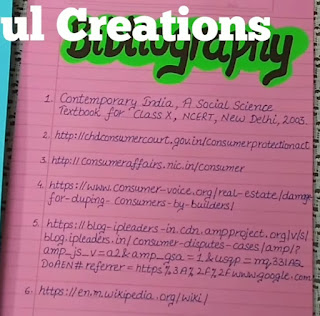 ul Creations
Bibliography
1. Contemporary India, A Social Science
Textbook for Class X, NCERT, New Delhi, 2003
2. http://chdconsumercourt.gov.in/consumerprotectionact
3. http://consumeraffairs.nic.in/consumer
4. https://www.consumer-voice.org/real-estate/damage
for-duping-consumers-by-builders/
5. https://blog-ipleaders-in.cdn.ampproject.org/v/s/
blog.ipleaders.in/consumer-disputes-cases/amp/?
amp_js_v=a2&amp_gsa=1&usqp=mq331AQ
DoAEN#referrer=https%3A%2F%2Fwww.google.com
6. https://en.m.wikipedia.org/wiki/